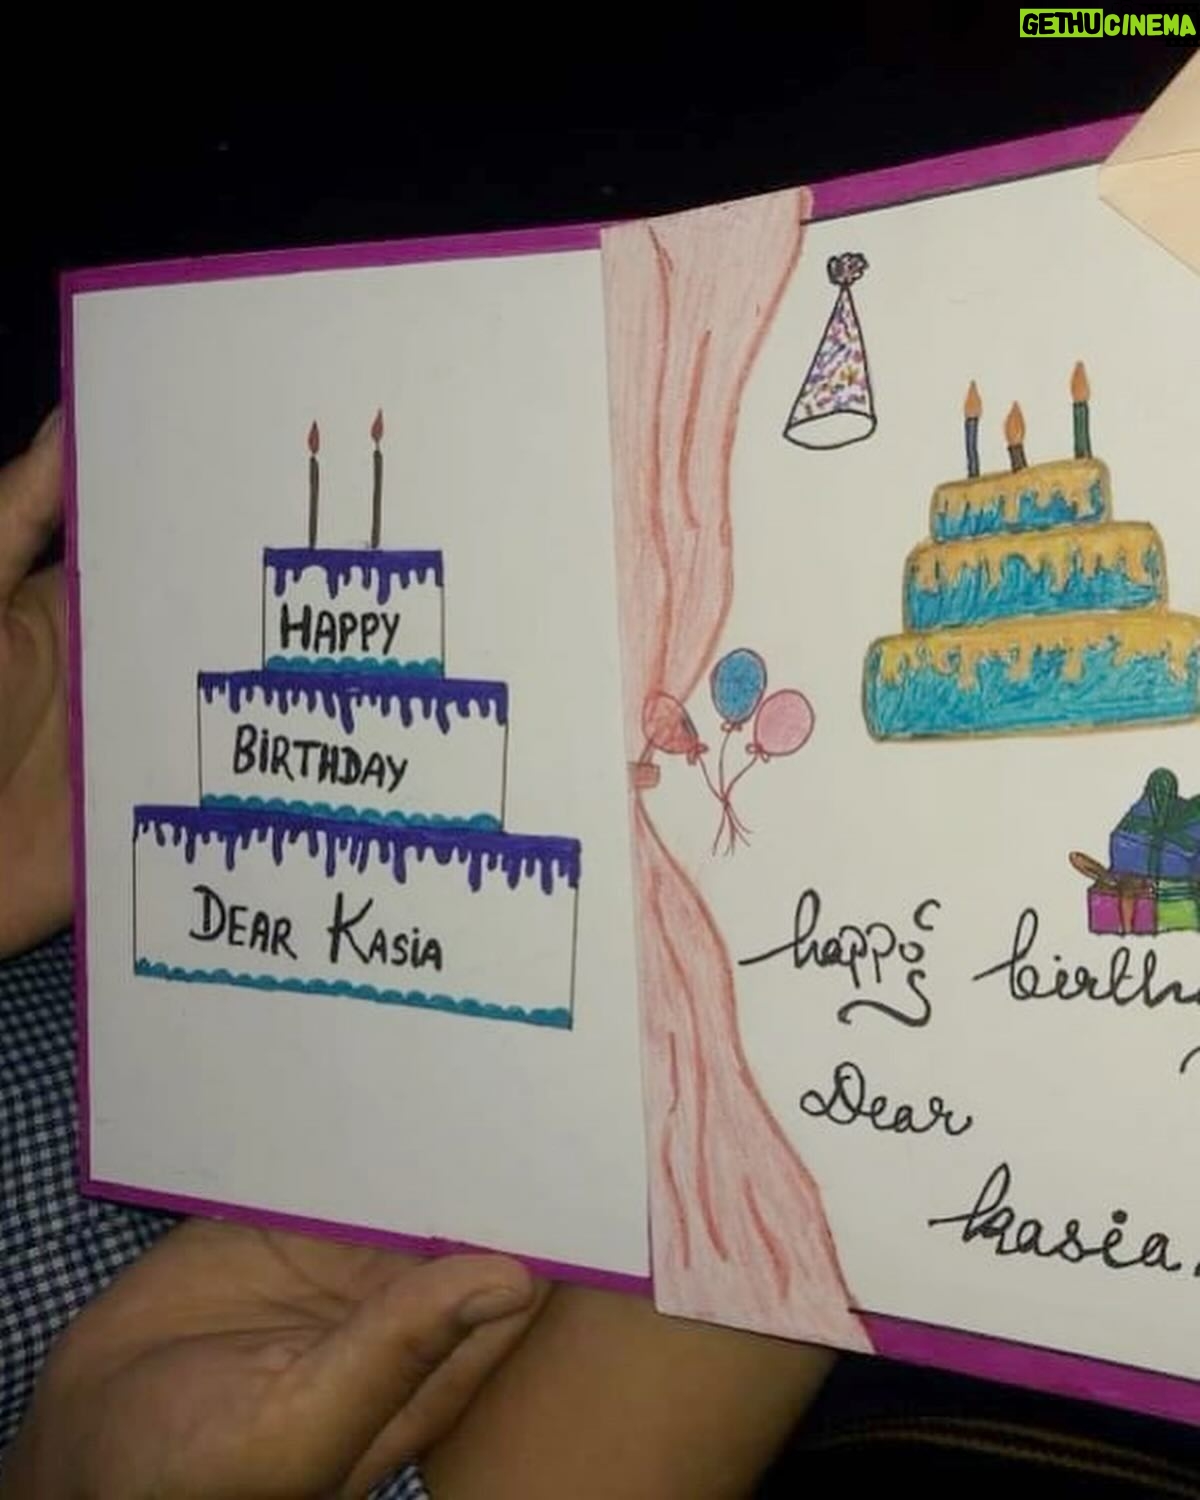 GETHUCINEMA
HAPPY
BIRTHDAY
DEAR KASIA
happy
Dear
kasia.